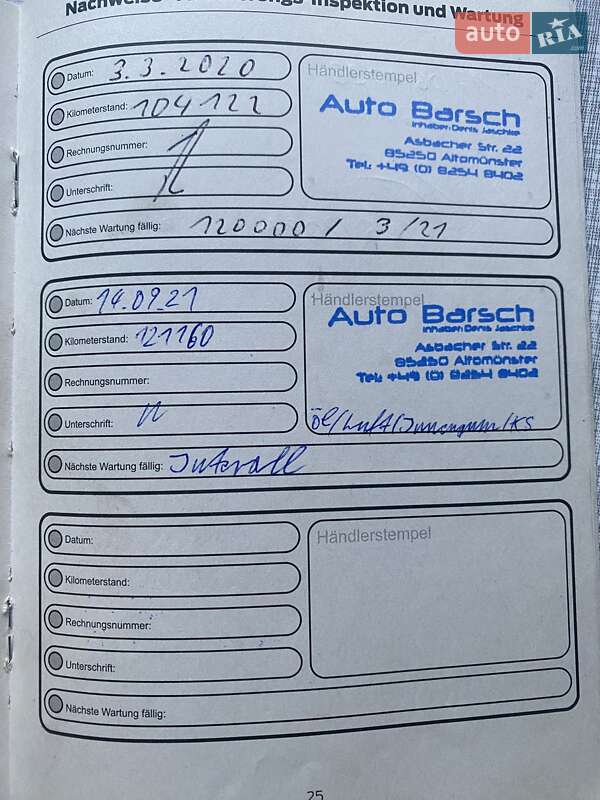 Inspektion und Wartung
auto RIA.com
Datum: 3.3.2020
Kilometerstand: 104122
Rechnungsnummer:
Unterschrift:
Nächste Wartung fällig: 120000 / 3/21
Händlerstempel
Auto Barsch
Inhaber: Denis Jaschke
Asbacher Str. 22
85250 Altomünster
Tel.: +49 (0) 8254 8402
Datum: 14.09.21
Kilometerstand: 121160
Rechnungsnummer:
Unterschrift:
Nächste Wartung fällig: Intervall
Händlerstempel
Auto Barsch
Inhaber: Denis Jaschke
Asbacher Str. 22
85250 Altomünster
Tel.: +49 (0) 8254 8402
Öl/Luft/Innenraum/KS
Datum:
Kilometerstand:
Rechnungsnummer:
Unterschrift:
Nächste Wartung fällig:
Händlerstempel
25